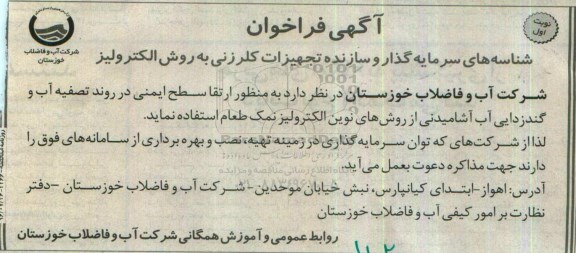 نوبت اول
آگهی فراخوان
شرکت آب و فاضلاب
خوزستان
شناسه های سرمایه گذار و سازنده تجهیزات کلرزنی به روش الکترولیز
شرکت آب و فاضلاب خوزستان در نظر دارد به منظور ارتقا سطح ایمنی در روند تصفیه آب و
گندزدایی آب آشامیدنی از روش‌های نوین الکترولیز نمک طعام استفاده نماید.
لذا از شرکت‌های که توان سرمایه‌گذاری در زمینه تهیه، نصب و بهره برداری از سامانه‌های فوق را
دارند جهت مذاکره دعوت بعمل می آید.
آدرس: اهواز-ابتدای کیانپارس، نبش خیابان موحدین -شرکت آب و فاضلاب خوزستان –دفتر
نظارت بر امور کیفی آب و فاضلاب خوزستان
روابط عمومی و آموزش همگانی شرکت آب و فاضلاب خوزستان